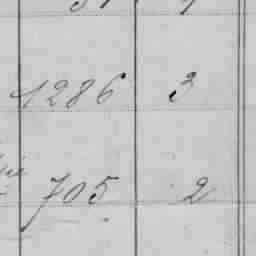 1286 3
705 2